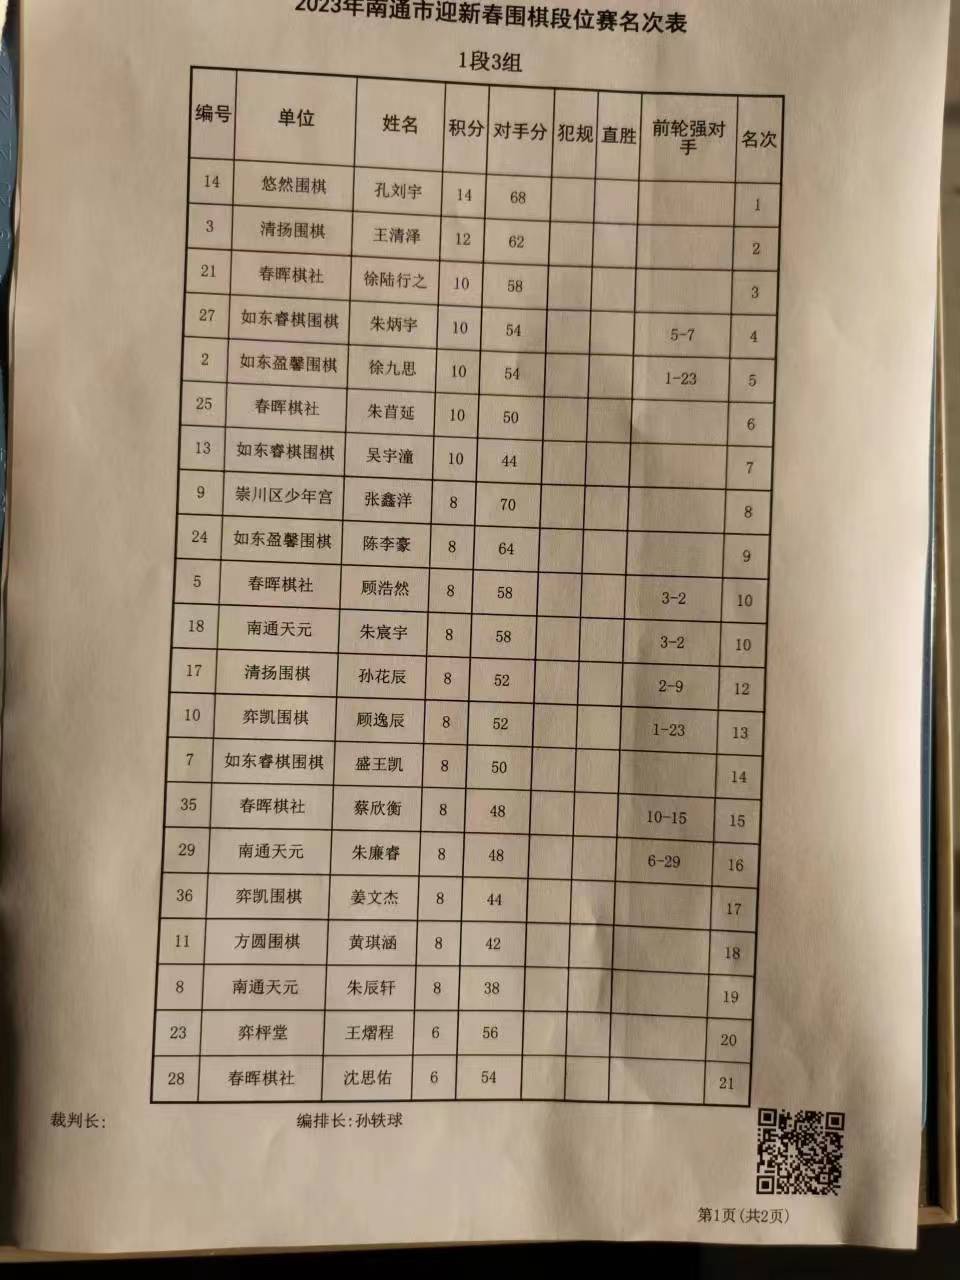 2023年南通市迎新春围棋段位赛名次表
1段3组
编号 单位 姓名 积分 对手分 犯规 直胜 前轮强对手 名次
14 悠然围棋 孔刘宇 14 68 1
3 清扬围棋 王清泽 12 62 2
21 春晖棋社 徐陆行之 10 58 3
27 如东睿棋围棋 朱炳宇 10 54 5-7 4
2 如东盈馨围棋 徐九思 10 54 1-23 5
25 春晖棋社 朱苜延 10 50 6
13 如东睿棋围棋 吴宇潼 10 44 7
9 崇川区少年宫 张鑫洋 8 70 8
24 如东盈馨围棋 陈李豪 8 64 9
5 春晖棋社 顾浩然 8 58 3-2 10
18 南通天元 朱宸宇 8 58 3-2 10
17 清扬围棋 孙花辰 8 52 2-9 12
10 弈凯围棋 顾逸辰 8 52 1-23 13
7 如东睿棋围棋 盛王凯 8 50 14
35 春晖棋社 蔡欣衡 8 48 10-15 15
29 南通天元 朱廉睿 8 48 6-29 16
36 弈凯围棋 姜文杰 8 44 17
11 方圆围棋 黄琪涵 8 42 18
8 南通天元 朱辰轩 8 38 19
23 弈枰堂 王熠程 6 56 20
28 春晖棋社 沈思佑 6 54 21
裁判长: 编排长:孙轶球
第1页(共2页)